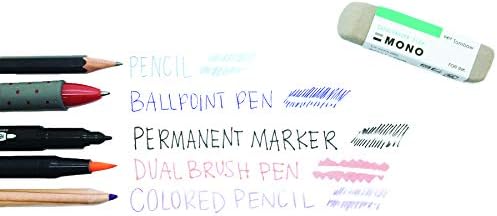 MONO
PENCIL
BALLPOINT PEN
PERMANENT MARKER
DUAL BRUSH PEN
COLORED PENCIL